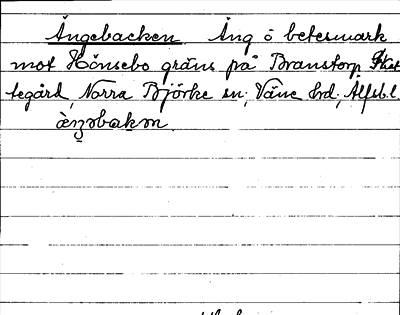 Ängebacken Äng ö betesmark
mot Hönsebo gräns på Branstorp
tegård, Norra Björke sn; Väne hd; Älfsb.l.